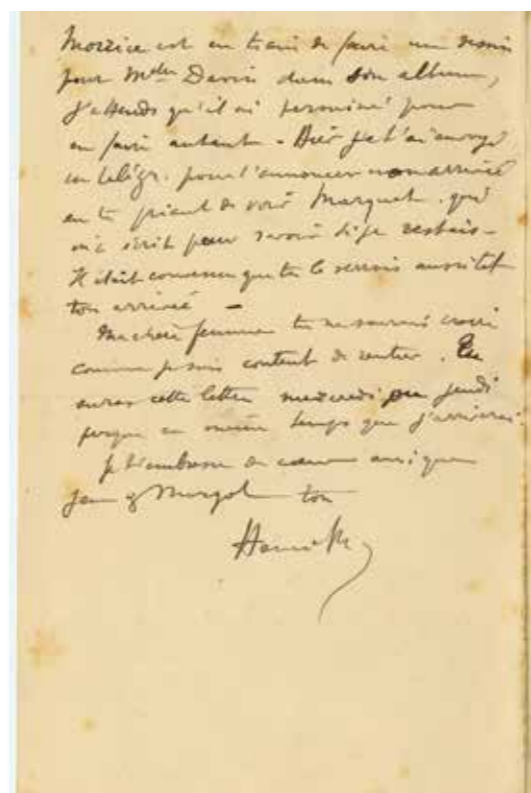 Morrice est en train de faire un dessin
pour Mme Davin dans son album,
j'attends qu'il ai terminé pour
en faire autant - Hier je t'ai envoyé
un télégr. pour t'annoncer mon arrivée
en te priant de voir Marquet. qui
m'a écrit pour savoir si je restais -
Il était convenu que tu le verrais aussitôt
ton arrivée -
Ma chère femme tu ne saurais croire
comme je suis content de rentrer. Tu
auras cette lettre mercredi ou jeudi
presque en même temps que j'arriverai.
Je t'embrasse de cœur ainsi que
Jean & Margot ton
Henri M